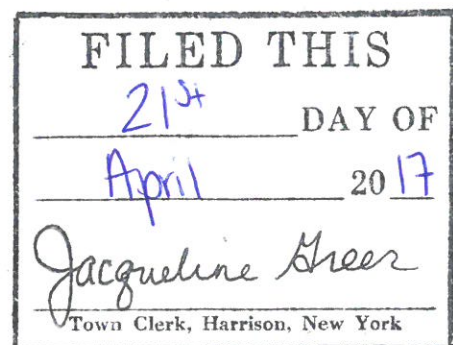 FILED THIS
21st DAY OF
April 2017
Jacqueline Greer
Town Clerk, Harrison, New York